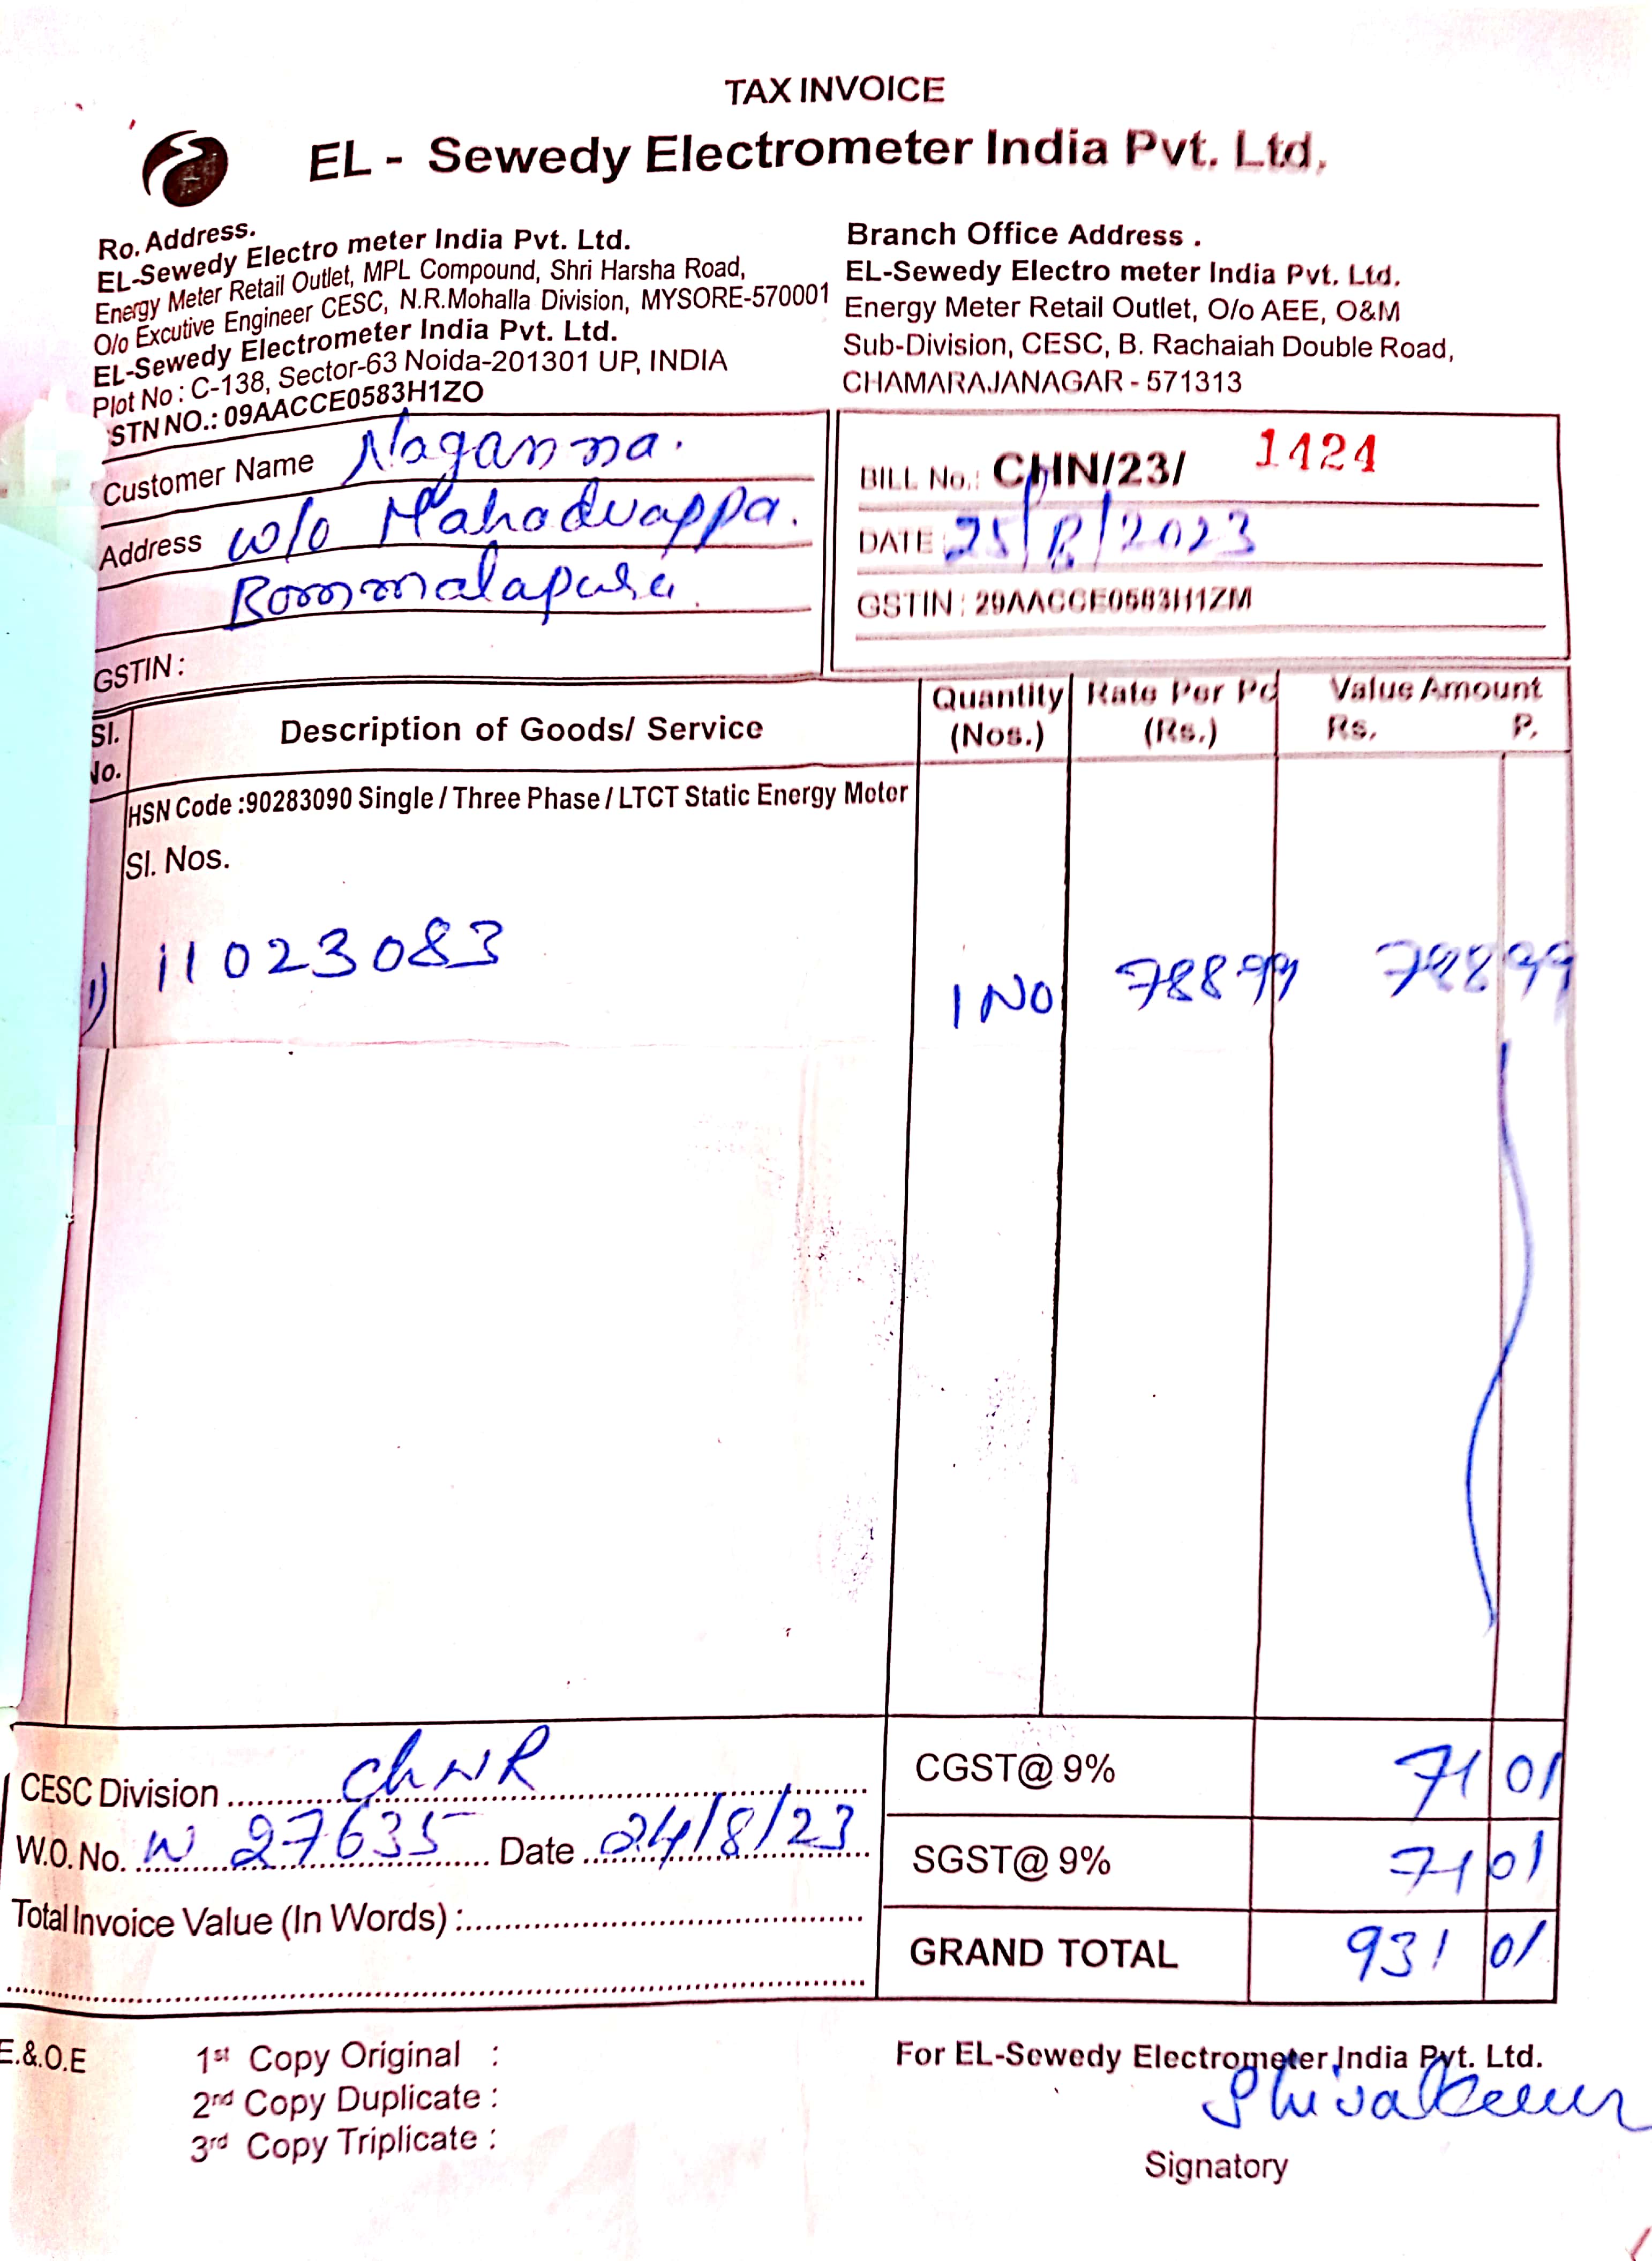 TAX INVOICE
EL - Sewedy Electrometer India Pvt. Ltd.
Ro. Address.
EL-Sewedy Electro meter India Pvt. Ltd.
Energy Meter Retail Outlet, MPL Compound, Shri Harsha Road,
O/o Excutive Engineer CESC, N.R.Mohalla Division, MYSORE-570001
EL-Sewedy Electrometer India Pvt. Ltd.
Plot No : C-138, Sector-63 Noida-201301 UP, INDIA
STN NO.: 09AACCE0583H1ZO
Branch Office Address .
EL-Sewedy Electro meter India Pvt. Ltd.
Energy Meter Retail Outlet, O/o AEE, O&M
Sub-Division, CESC, B. Rachaiah Double Road,
CHAMARAJANAGAR - 571313
Customer Name Naganna.
Address w/o Mahadvappa.
Bommalapura
GSTIN :
BILL No.: CHN/23/ 1424
DATE 25/8/2023
GSTIN : 29AACCE0583H1ZM
Sl. No. Description of Goods/ Service Quantity (Nos.) Rate Per Pc (Rs.) Value Amount Rs. P.
HSN Code :90283090 Single / Three Phase / LTCT Static Energy Meter
Sl. Nos.
1) 11023083 1 NO 78899 788 99
CESC Division chNR
W.O. No. N 27635 Date 24/8/23
Total Invoice Value (In Words) :
CGST@ 9% 71 01
SGST@ 9% 71 01
GRAND TOTAL 931 01
E.&.O.E
1st Copy Original :
2nd Copy Duplicate :
3rd Copy Triplicate :
For EL-Sewedy Electrometer India Pvt. Ltd.
Signatory